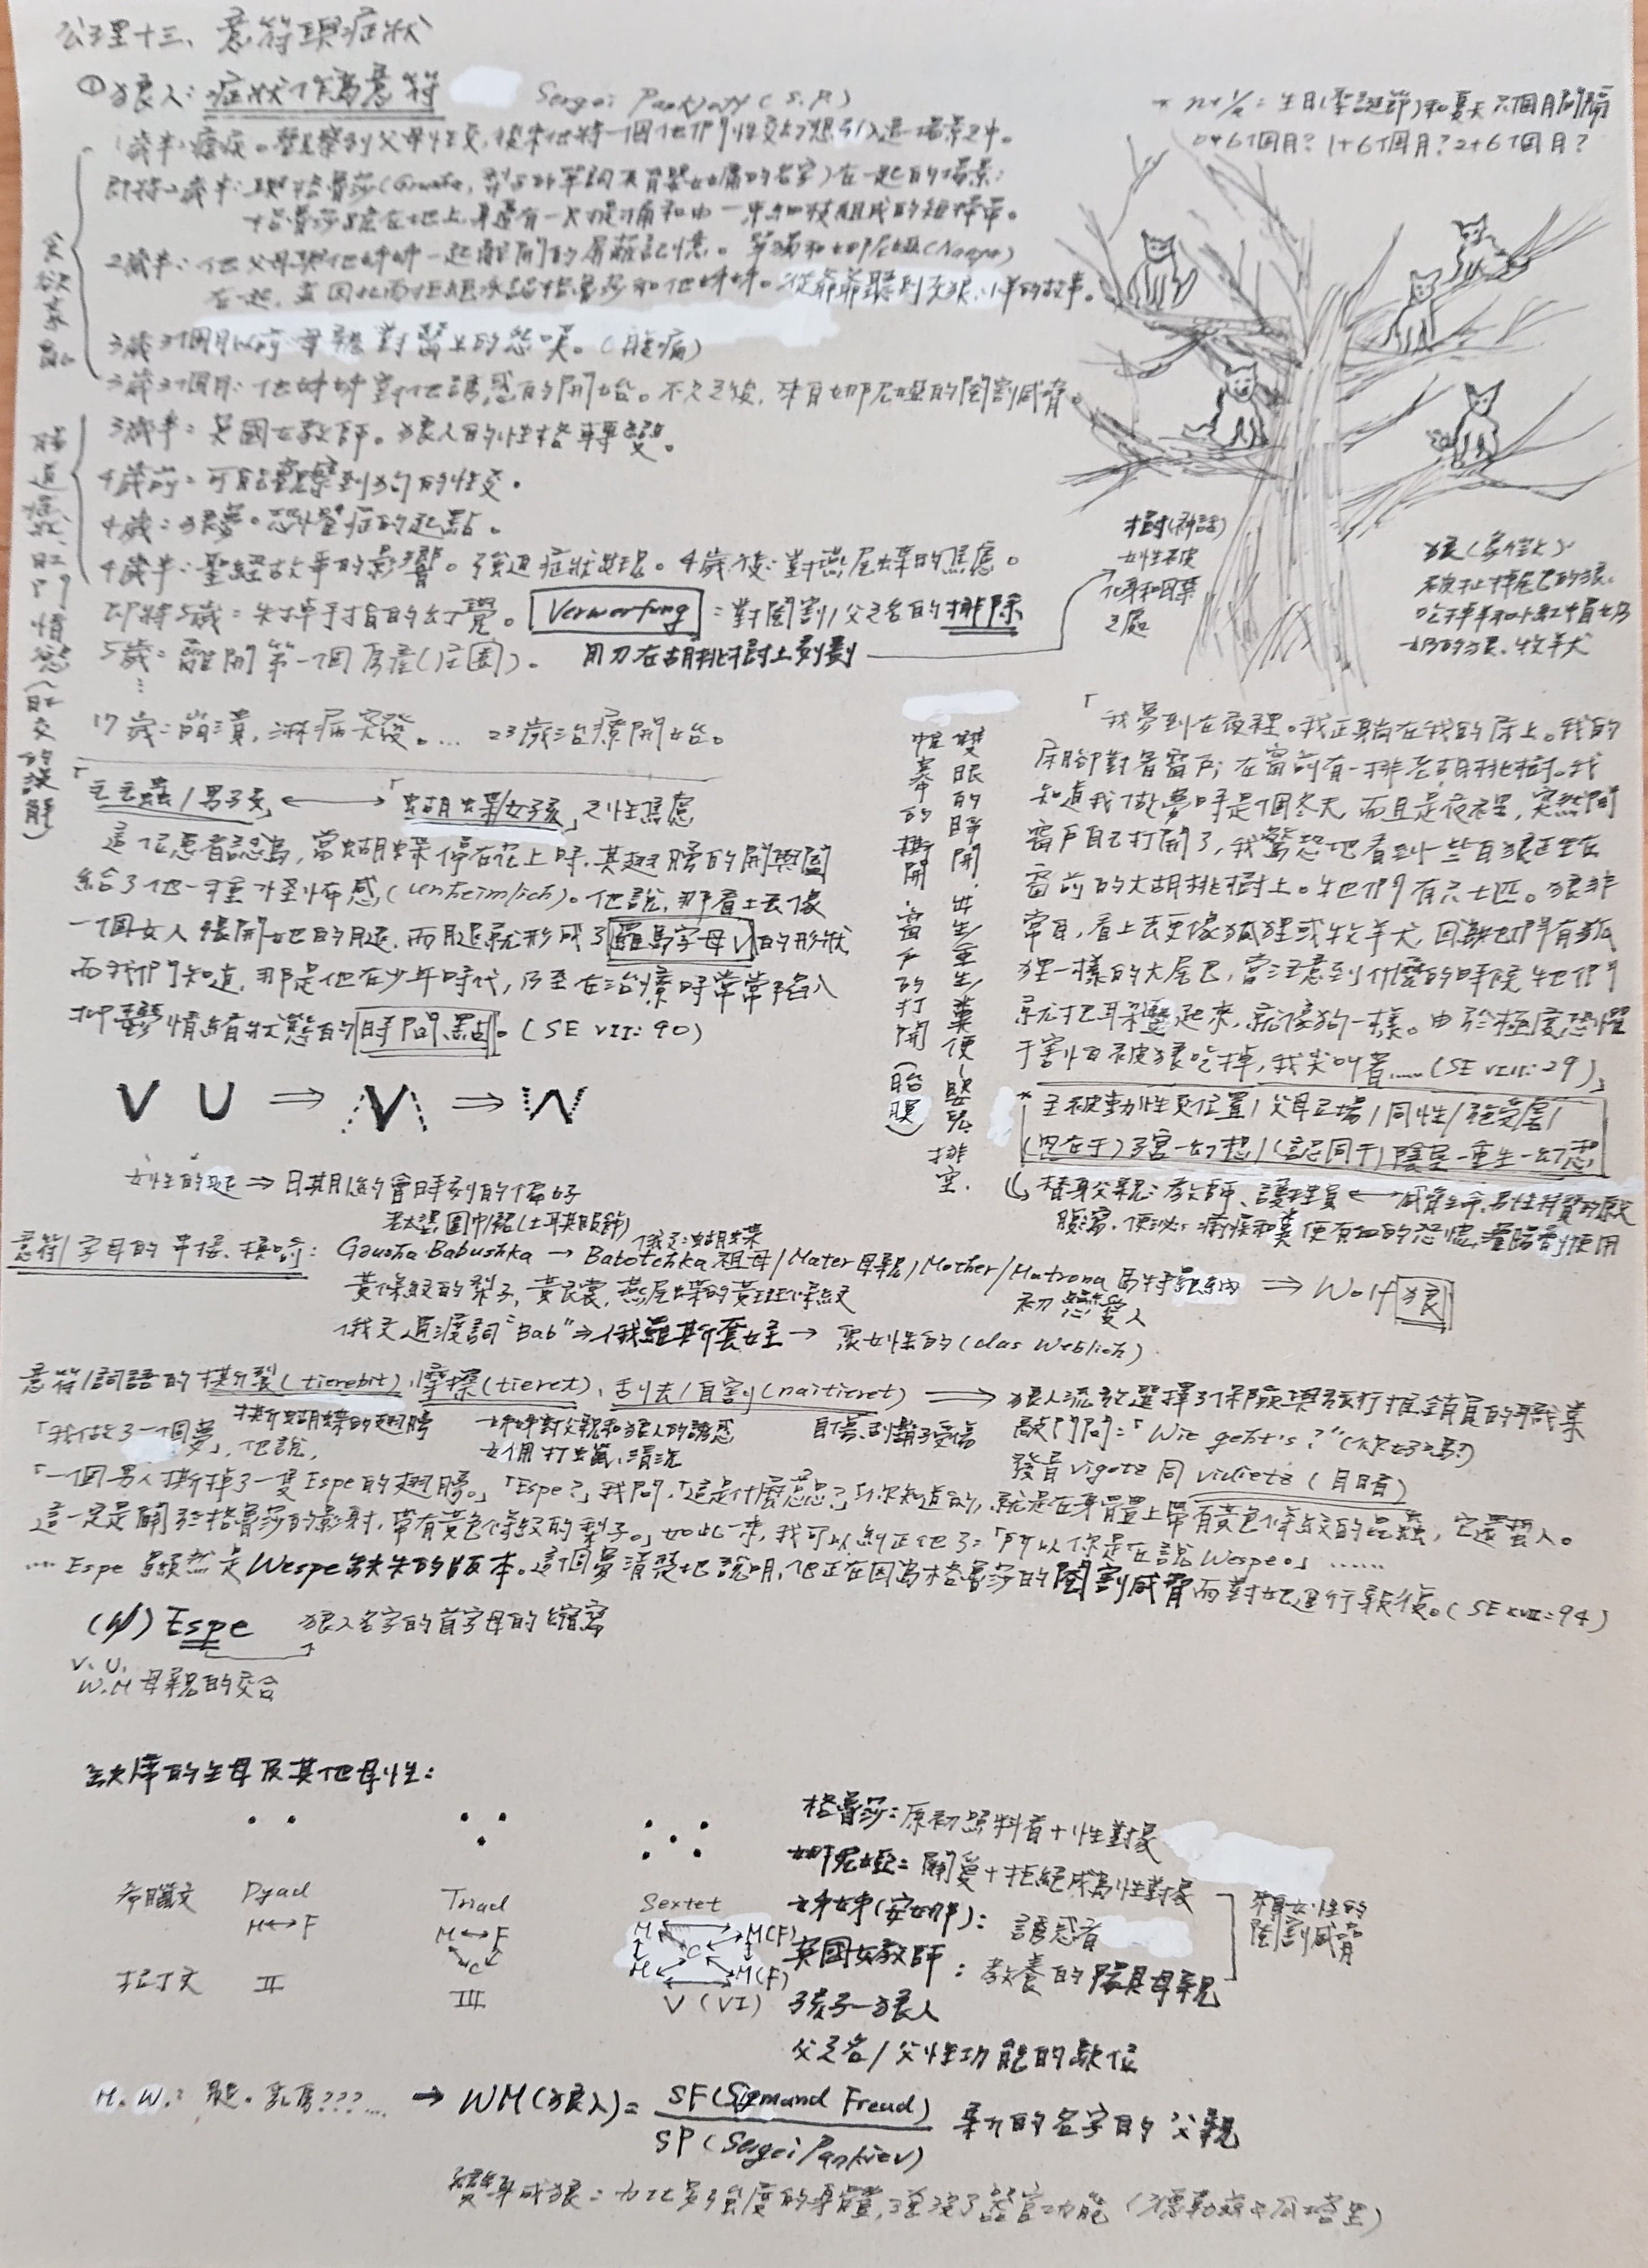 公理十三、意符與症狀
①狼人：症狀作為意符
Sergei (S.P.)
1歲半：瘧疾。觀察到父母性交，後來他將一個他們性交的想引入這場景之中。
即將2歲半：與格魯莎(Grusha, )在一起的場景：
格魯莎跪在地上，身邊有一水桶和由一束細枝組成的短掃帚。
2歲半：他父母與他姊姊一起離開的屏蔽記憶。單獨和娜尼婭(Nanya)
在一起，並因此而拒絕承認格魯莎和他姊姊。從爺爺聽到灰狼、小羊的故事。
3歲3個月以前 母親對醫生的怨嘆。(腹痛)
3歲3個月：他姊姊對他誘惑的開始。不久之後，來自娜尼婭的閹割威脅。
3歲半：英國女教師。狼人的性格轉變。
4歲前：可能觀察到狗的性交。
4歲：狼夢。恐懼症的起點。
4歲半：聖經故事的影響。強迫症狀出現。4歲後：對燕尾蝶的焦慮。
即將5歲：失掉手指的幻覺。Verwerfung：對閹割/父之名的排除
5歲：離開第一個房產(莊園)。 用刀在胡桃樹上刻劃
⋮
17歲：崩潰，淋病突發。… 23歲治療開始。
* n+1/2：生日(聖誕節)和夏天 六個月間隔
0+6個月？1+6個月？2+6個月？
樹(神話)
女性被
化身和囚禁
之處
狼(象徵)
被扯掉尾巴的狼、
吃掉羊和小紅帽奶
奶的狼、牧羊犬
「毛毛蟲/男孩」⟷「蝴蝶/女孩」之性焦慮
這位患者認為，當蝴蝶停在花上時，其翅膀的開與闔
給了他一種怪怖感(unheimlich)。他說，那看上去像
一個女人張開她的腿，而腿就形成了羅馬字母V的形狀
而我們知道，那是他在少年時代，乃至在治療時常常陷入
抑鬱情緒狀態的時間點。(SE VII: 90)
V U ⇒ V ⇒ W
女性的腿 ⇒ 日期/約會時刻的偏好
雙眼的睜開．出生/重生/糞便-嬰兒排空．
帷幕的撕開．窗戶的打開(胎膜)
「我夢到在夜裡。我正躺在我的床上。我的
床腳對著窗戶；在窗前有一排老胡桃樹。我
知道我做夢時是個冬天，而且是夜裡，突然間
窗戶自己打開了，我驚恐地看到一些白狼正坐在
窗前的大胡桃樹上。牠們有六七匹。狼非
常白，看上去更像狐狸或牧羊犬，因為牠們有狐
狸一樣的大尾巴，當注意到什麼的時候牠們
就把耳朵豎起來，就像狗一樣。由於極度恐懼
於害怕被狼吃掉，我尖叫著……(SE VII: 29)」
* 主被動性交位置/父母立場/同性/絕愛慮/
(內在于)子宮-幻想/(認同于)陰莖-重生-幻想
替身父親：教師、護理員 ⟷
腹瀉、便祕、瘧疾和糞便有血的恐懼、灌腸劑使用
老太婆 圍巾帽(土耳其服飾) 俄文：蝴蝶
意符/字母的串接、換喻：Grusha Babushka → Babotchka 祖母/Mater 母親/Mother/Matrona ⇒ Wolf 狼
黃條紋的梨子、黃衣裳、燕尾蝶的黃斑條紋 初戀愛人
俄文過渡詞 "Bab" ⇒ 俄羅斯套娃 → 眾女性的(das Weblich)
意符/詞語的撕裂(tierebit)、摩擦(tieret)、刮去/自割(naitieret) → 狼人流放選擇了保險與旅行推銷員的職業
撕蝴蝶的翅膀 姊姊對父親和狼人的誘惑 自傷、刮鬍子受傷
女傭打虫篇、清洗
敲門問：「Wie geht's？」(你好嗎？)
發音 vigotz 同 vidietz (目睹)
「我做了一個夢」，他說，
「一個男人撕掉了一隻Espe的翅膀。」「Espe？」我問，「這是什麼意思？」「你知道的，就是在身體上帶有黃色條紋的昆蟲，它還螫人。
這一定是關於格魯莎的影射，帶有黃色條紋的梨子。」如此一來，我可以糾正他了：「所以你是在說Wespe。」……
… Espe 顯然是Wespe缺失的版本。這個夢清楚地說明，他正在因為格魯莎的閹割威脅而對她進行報復。(SE XVII: 94)
(W) Espe 狼人名字的首字母的縮寫
V. U.
W.M 母親的交合
缺席的生母及其他母性：
希臘文 Dyad Triad Sextet
M↔F M↔F C M M(F) C M M(F)
拉丁文 II III V (VI)
格魯莎：原初照料者＋性對象
娜尼婭：關愛＋拒絕成為性對象
姊姊(安娜)：誘惑者
英國女教師：教養的陽具母親
來自女性的閹割威脅
孩子—狼人
父之名/父性功能的缺位
M. W.：腿。乳房???… → WM(狼人) = SF(Sigmand Freud) / SP(Sergei Pankiev)
變身成狼：力比多強度的身體，
食欲紊亂
腸道症狀、肛門情慾(肛交的誤解)